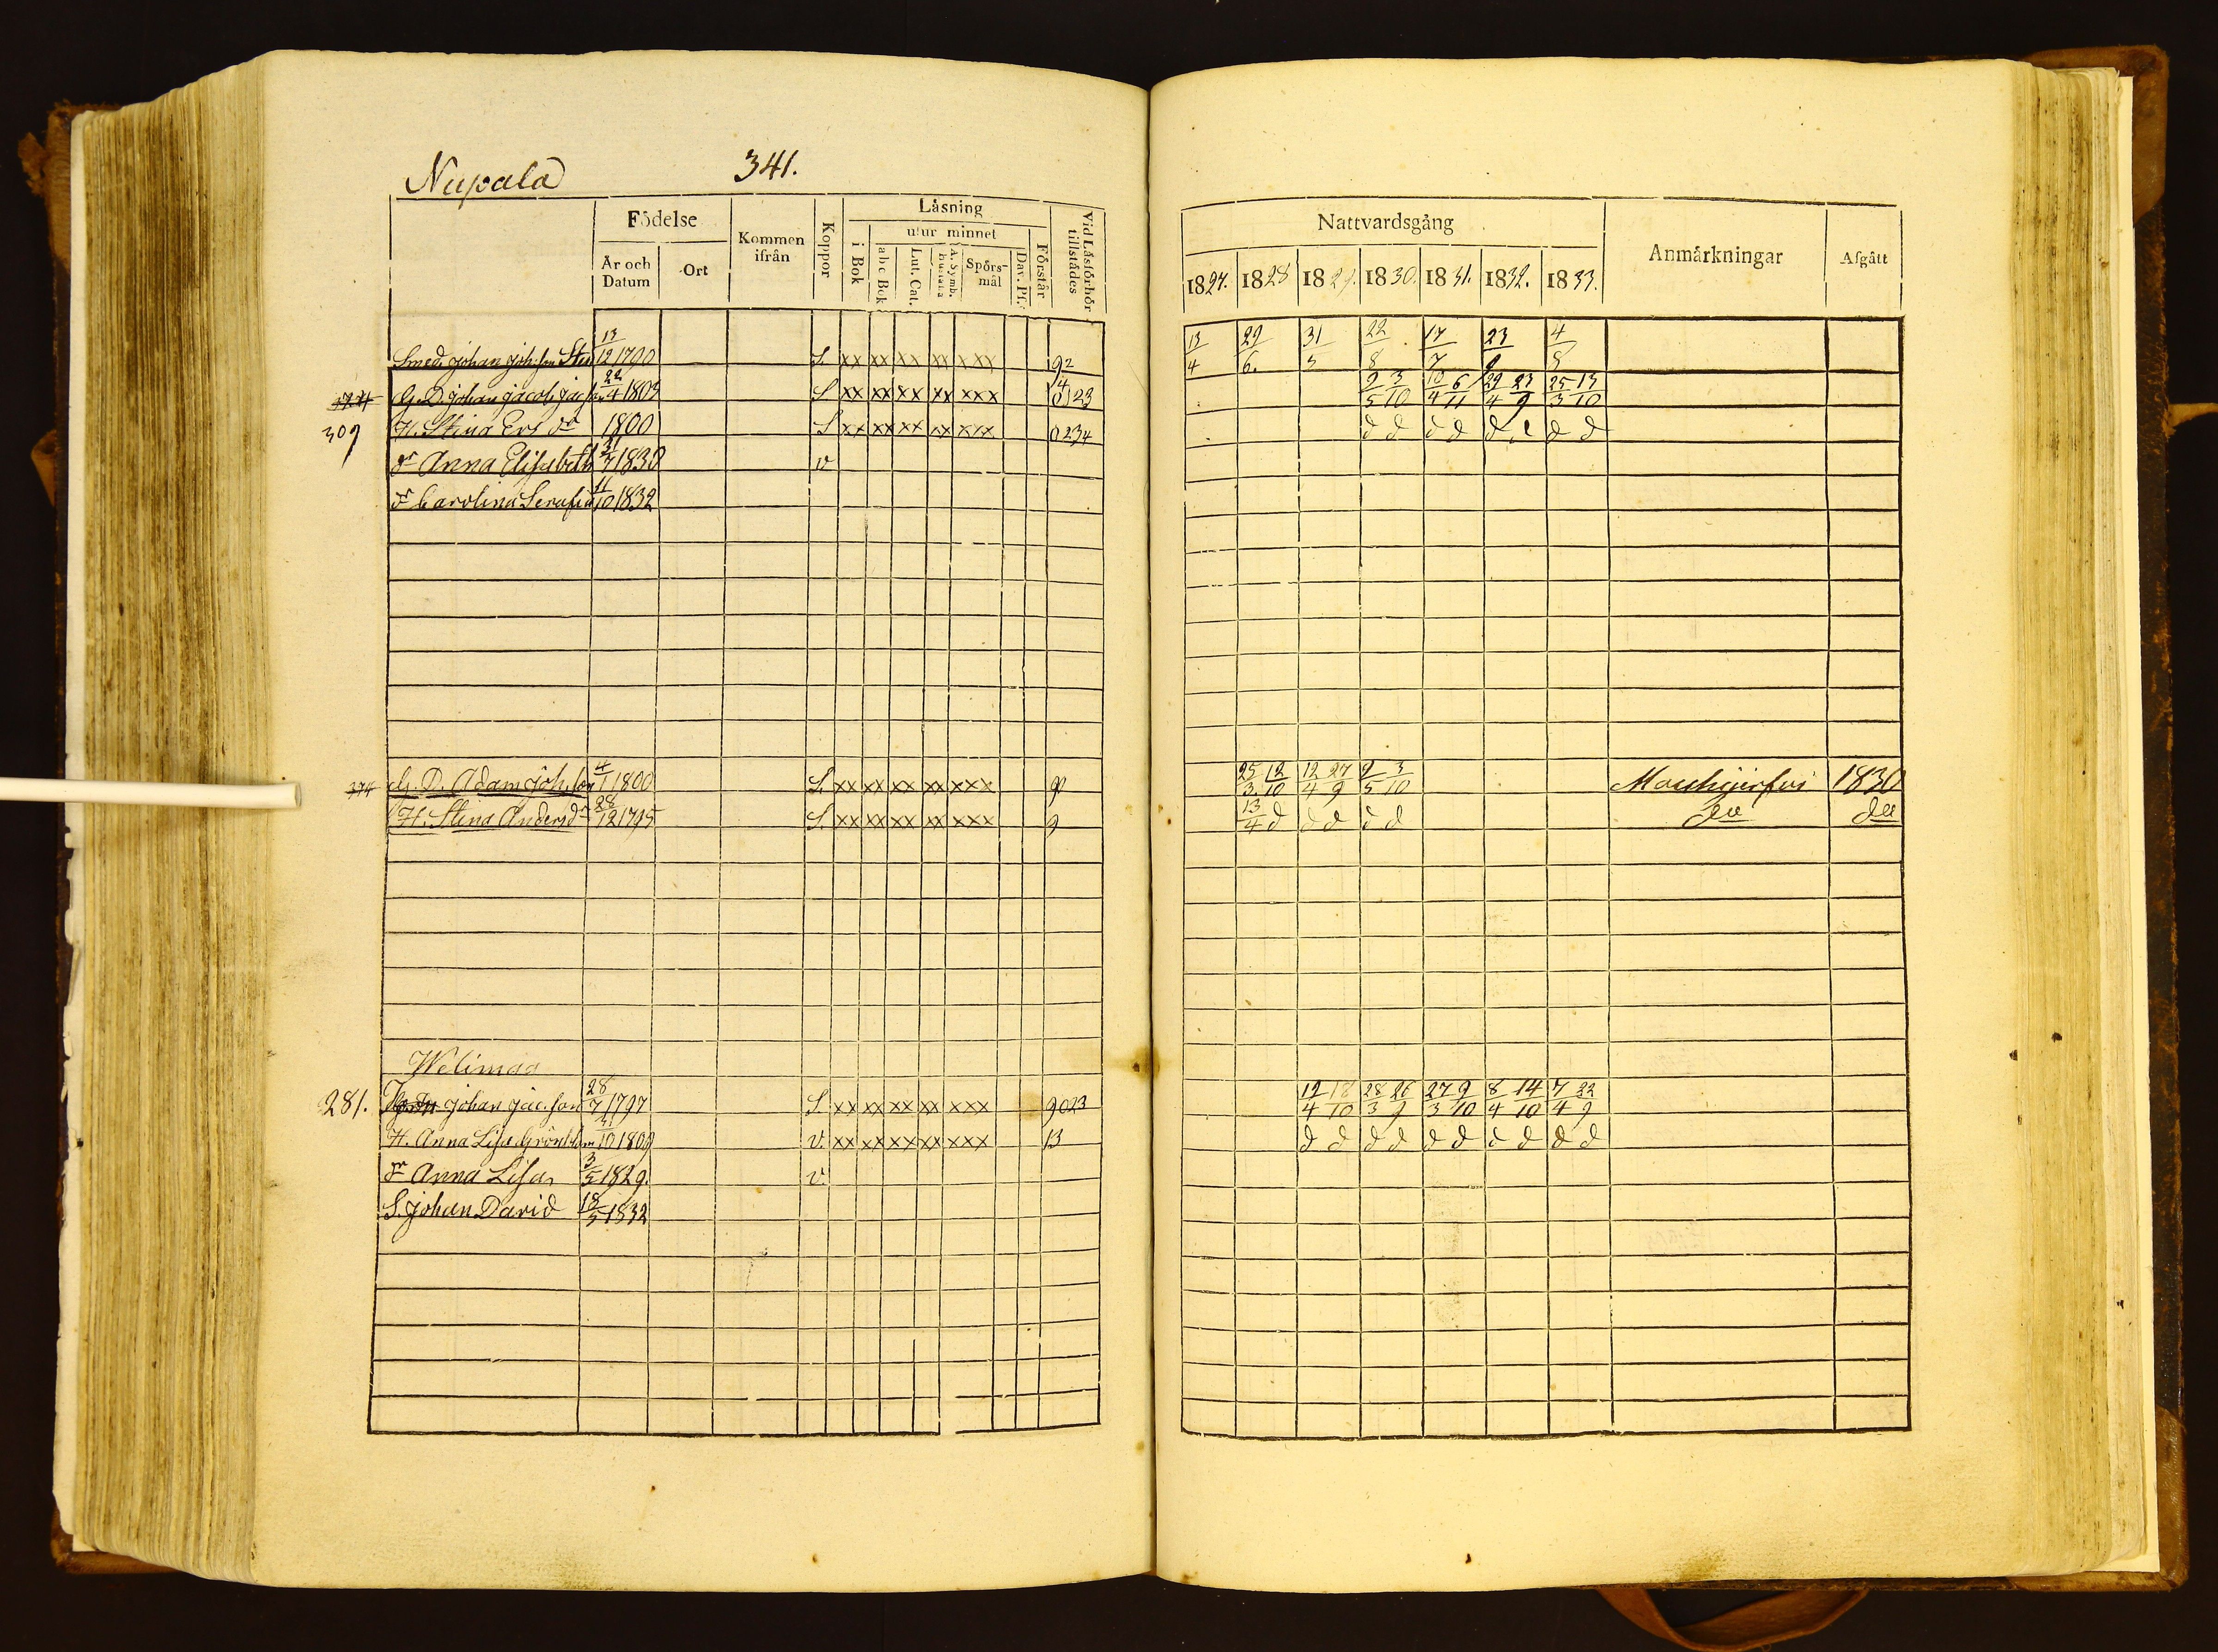 Nupala 341.
Födelse Kommen ifrån Koppor Läsning Vid Läsförhör tillstådes
utur minnet
År och Datum Ort i Bok abc Bok Lut. Cat. A. Symb. Hustafla Spörs-mål Dav. Ps. Förstår
Nattvardsgång Anmärkningar Afgått
1827. 1828 1829. 1830. 1831. 1832. 1833.
Smed. Johan Joh:son 13/12 1790 S. xx xx xx xx xxx 92 13/4 29/6. 31/5 22/8 17/7 23/9 4/8
374 G. D. Johan Jacob Jacson 22/4 1809 S xx xx xx xx xxx 0123 9/5 3/10 10/4 6/11 29/4 23/9 25/3 13/10
309 H. Stina Ers dr 1800 S xx xx xx xx xxx 0234 d d d d d d d d
dr Anna Elisabeth 21/7 1830 v
dr Carolina Serafia 11/10 1832
374 G. D. Adam Joh.son 4/1 1800 S. xx xx xx xx xxx 9 25/3 12/10 12/4 27/9 9/5 3/10 1830
H. Stina Andersdr 28/12 1795 S. xx xx xx xx xxx 9 13/4 d d d d d do do
Welimaa
281. Johan Jac.son 28/7 1797 S. xx xx xx xx xxx 9023 12/4 18/10 28/3 26/9 27/3 9/10 8/4 14/10 7/4 22/9
H. Anna Lisa Grönblom 21/10 1809 v. xx xx xx xx xxx 13 d d d d d d d d d d
dr Anna Lisa 3/5 1829. v.
S. Johan David 18/5 1832